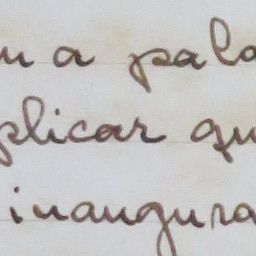 ma pala
plicar qu
inaugura